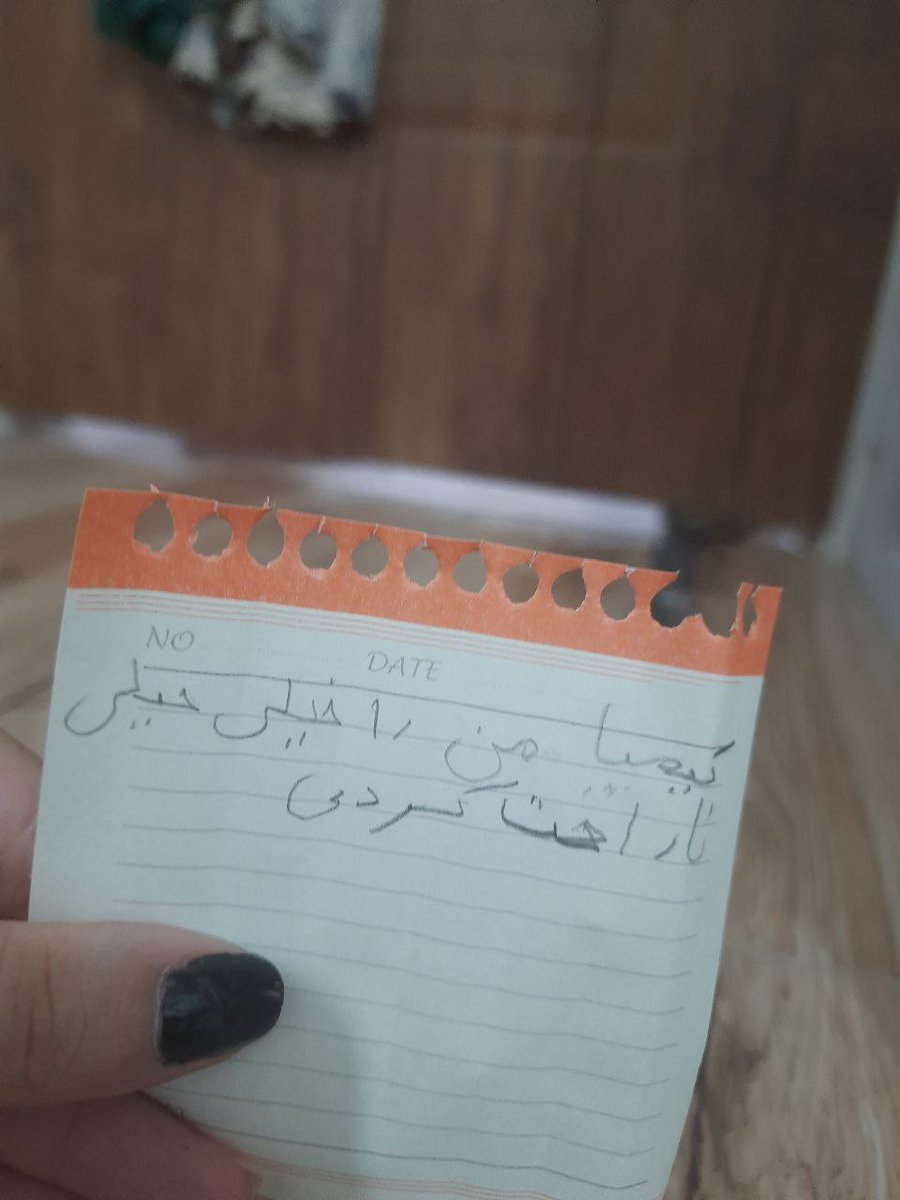 NO DATE
کیمیا من را خیلی خیلی
ناراحت کردی